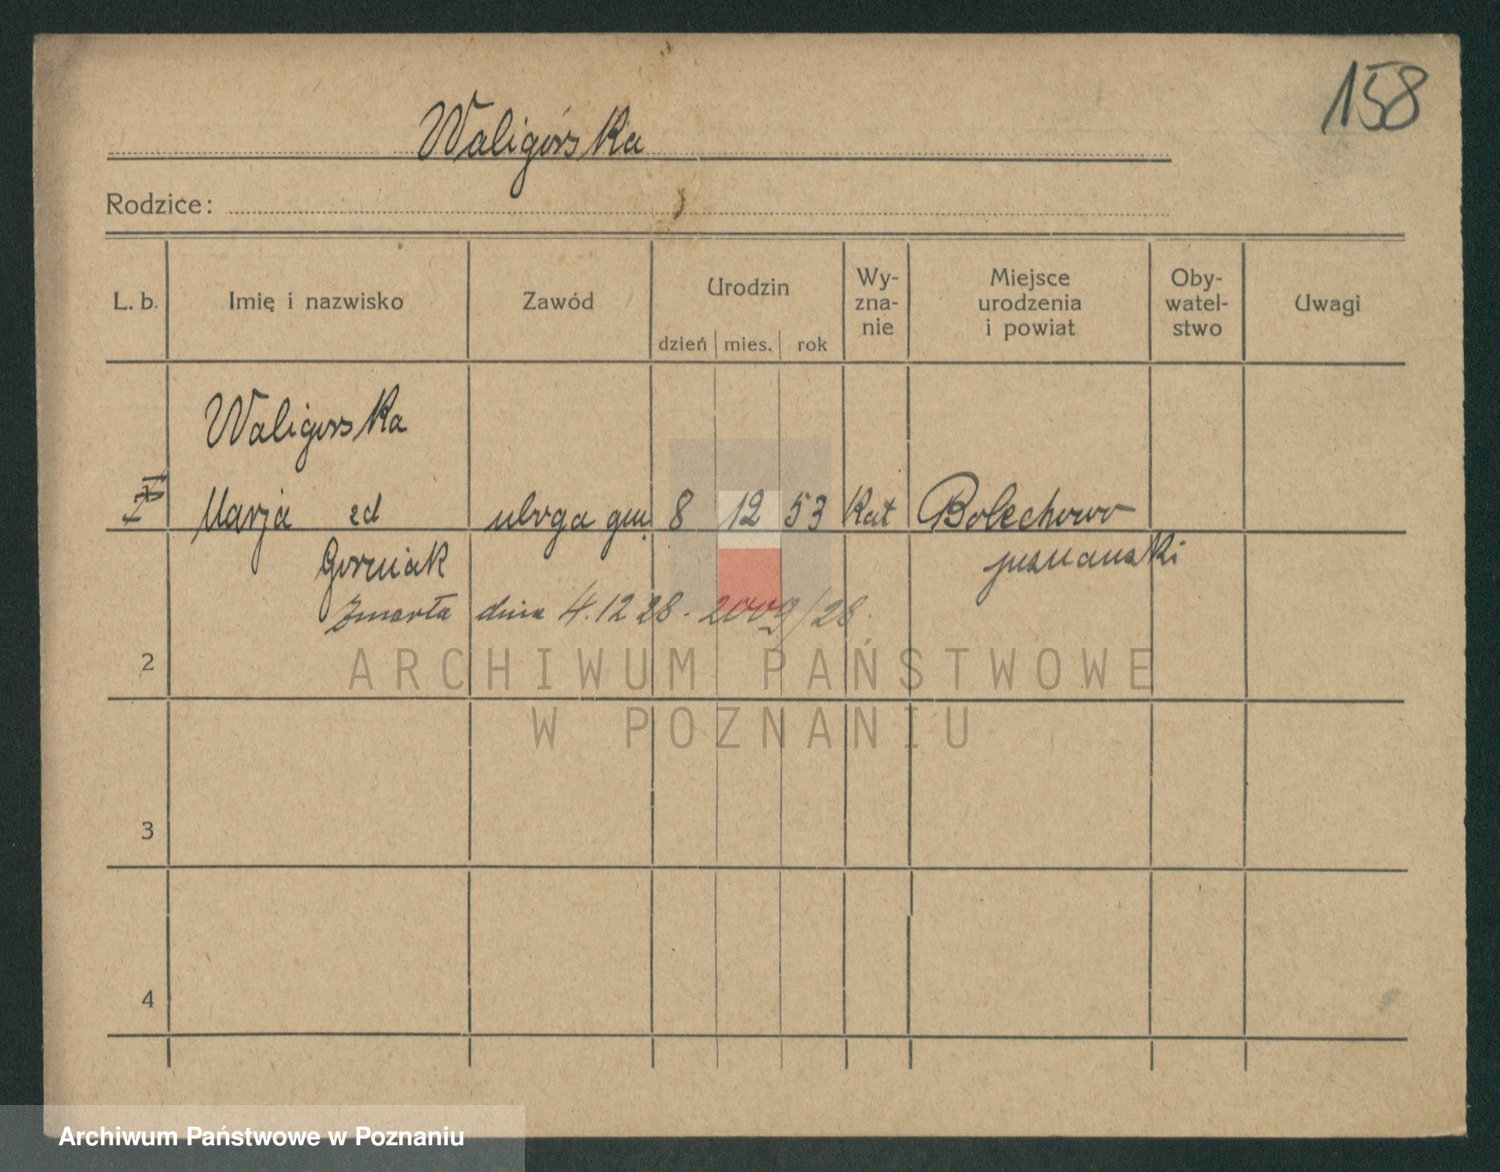 158
Waligórska
Rodzice:
L. b.
Imię i nazwisko
Zawód
Urodzin
dzień mies. rok
Wy-
zna-
nie
Miejsce
urodzenia
i powiat
Oby-
watel-
stwo
Uwagi
Waligorska
Marja zd uboga gm. 8 12 53 Kat Bolechowo
Gorniak poznanski
Zmarła dnia 4.12 28. 2009/28.
2
3
4
ARCHIWUM PAŃSTWOWE
W POZNANIU
Archiwum Państwowe w Poznaniu